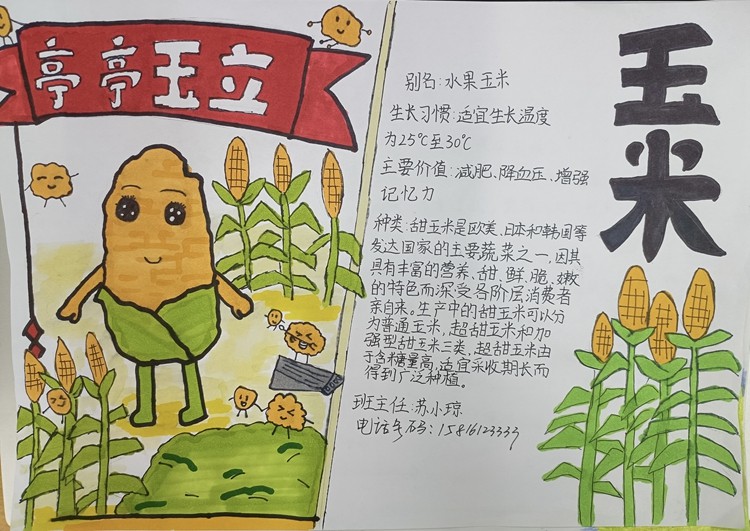 亭亭玉立
玉米
别名:水果玉米
生长习惯:适宜生长温度
为25℃至30℃
主要价值:减肥、降血压、增强
记忆力
种类:甜玉米是欧美、日本和韩国等
发达国家的主要蔬菜之一,因其
具有丰富的营养、甜、鲜、脆、嫩
的特色而深受各阶层消费者
亲自来。生产中的甜玉米可以分
为普通玉米,超甜玉米和加
强型甜玉米三类,超甜玉米由
于含糖量高,适宜采收期长而
得到广泛种植。
班主任:苏小琼
电话号码:15816123333